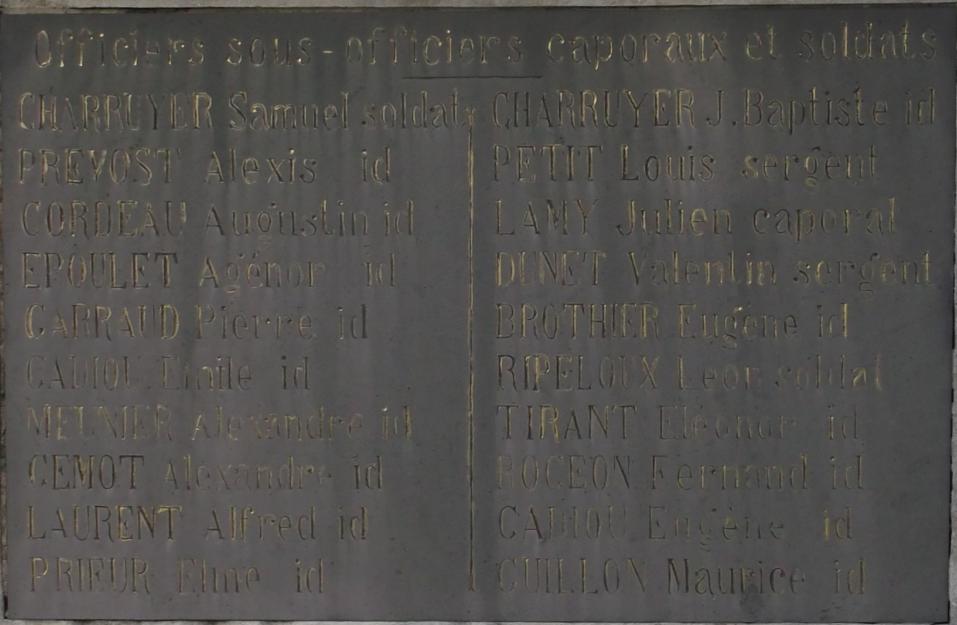 Officiers sous-officiers caporaux et soldats
CHARRUYER Samuel soldat
PREVOST Alexis id
CORDEAU Augustin id
EPOULET Agénor id
GARRAUD Pierre id
CADIOU Emile id
MEUNIER Alexandre id
GEMOT Alexandre id
LAURENT Alfred id
PRIEUR Elme id
CHARRUYER J. Baptiste id
PETIT Louis sergent
LAMY Julien caporal
DUNET Valentin sergent
BROTHIER Eugène id
RIPELOUX Leon soldat
TIRANT Eléonor id
ROGEON Fernand id
CADIOU Eugène id
GUILLON Maurice id